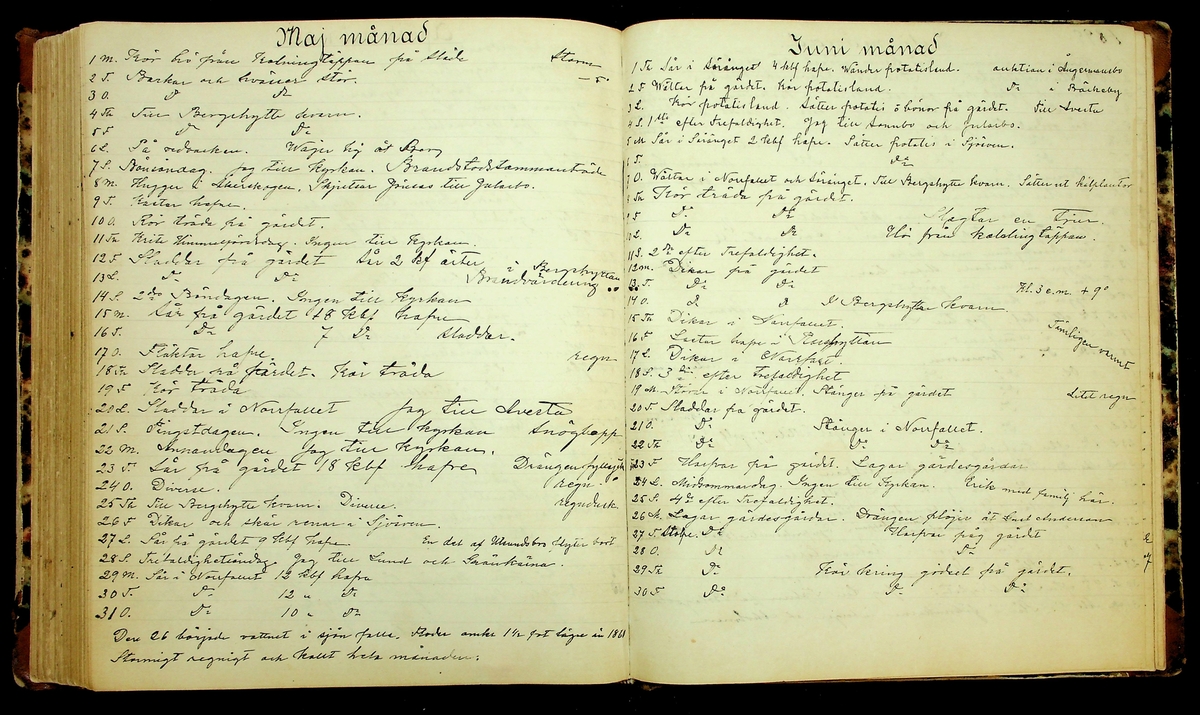 Maj månad
1 M. Kör hö från Kalningtäppan på Släde Storm
2 T. Barkar och kvistar stör. - 5°
3 O. Do Do
4 Th Till Bergshytte kvarn.
5 F Do Do
6 L. Så vedbacken.
7 S. Bönsöndag. Jag till Kyrkan. Brandstodssammanträde
8 M. Hugger i Skjutsar Jonsas till Gularbo.
9 T. Kastar hafre.
10 O. Kör träda på gärdet.
11 Th Kristi Himmelsfärdsdag. Ingen till Kyrkan.
12 F Sladdar på gärdet Sår 2 kbf ärter
13 L. Do Do Brandvärdering i Bergshyttan
14 S. 2dra Böndagen. Ingen till Kyrkan
15 M. Sår på gärdet 18 kbf hafre
16 T. Do 7 Do Sladdar.
17 O. Fläktar hafre. regn
18 Th Sladdar på gärdet. Kör träda
19 F Kör träda
20 L. Sladdar i Norrfallet Jag till Avesta
21 S. Pingstdagen. Ingen till Kyrkan Snöglopp
22 M. Annandagen Jag till Kyrkan.
23 T. Sår på gärdet 18 kbf hafre Drängen fyllsjuk
24 O. Diverse. regn
25 Th Till Bergshytte kvarn. Diverse. regndusk
26 F Dikar och skär renar i Sjöiven.
27 L. Sår på gärdet 9 kbf hafre En del af Utsundsbro flyter bort
28 S. Trefaldighetsöndag Jag till Lund och
29 M. Sår i Norrfallet 12 kbf hafre
30 T. Do 12 " Do
31 O. Do 10 " Do
Den 26 började vattnet i sjön falla. Stoder omkr 1½ fot lägre än 1861
Stormigt regnigt och kallt hela månaden.
Juni månad
1 Th Sår i Söränget 4 kbf hafre. Vänder potatisland. auktion i Ångermansbo
2 F Wälter på gärdet. Kör potatisland. Do i Bäckeby
3 L. Kör potatisland. Sätter potatis o bönor på gärdet. Till Avesta
4 S. 1sta efter Trefaldighet. Jag till Sonnbo och Gularbo.
5 M Sår i Söränget 2 kbf hafre. Sätter potatis i Sjöiven.
6 T. Do
7 O. Wältar i Norrfallet och Söränget. Till Bergshytte kvarn. Sätter ut kålplantor
8 Th Kör träda på gärdet.
9 F Do Do Slagtar en tjur.
10 L. Do Do Hö från Kalningtäppan.
11 S. 2dra efter Trefaldighet.
12 M. Dikar på gärdet
13 T. Do Do Kl. 3 e.m. + 9°
14 O. D D T Bergshytte kvarn
15 Th Dikar i Norrfallet. Tämligen varmt
16 F i
17 L. Dikar i Norrfallet.
18 S. 3dje efter Trefaldighet
19 M. Störar i Norrfallet. Stänger på gärdet Litet regn
20 T Sladdar på gärdet.
21 O. Do Stänger i Norrfallet.
22 Th Do Do Do
23 F Harfvar på gärdet. Lagar gärdesgårdar
24 L. Midsommardag. Ingen till Kyrkan. Erik med familj här.
25 S. 4de efter Trefaldighet.
26 M. Lagar gärdesgårdar. Drängen plöjer åt Gust Anderson
27 T. Do Harfvar på gärdet
28 O. Do Do
29 Th Do Kör kring gödsel på gärdet.
30 F Do Do Do